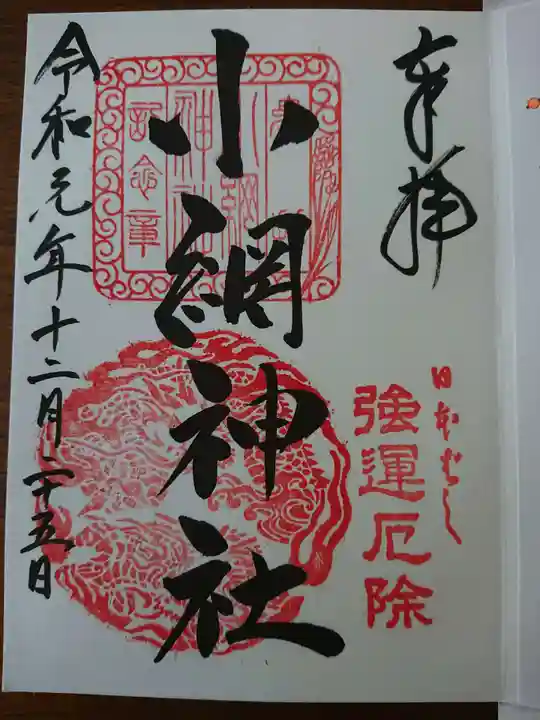 奉拝
日本ばし
強運厄除
小網神社
令和元年十二月二十五日